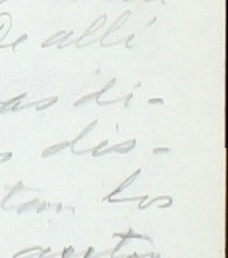 De allí
as di-
s dis-
tan los